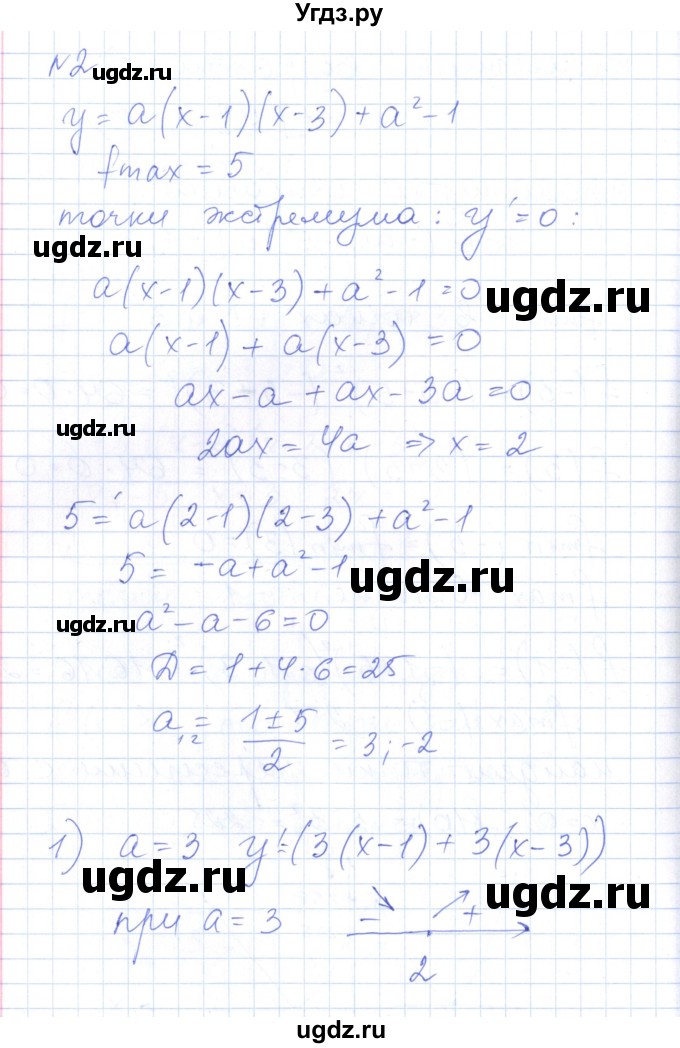 Угдз.ру
№2
ugdz.ru
y = a(x-1)(x-3) + a²-1
fmax = 5
точки экстремума: y' = 0:
ugdz.ru
a(x-1)(x-3) + a²-1 = 0
ugdz.ru
a(x-1) + a(x-3) = 0
ax - a + ax - 3a = 0
ugdz.ru
2ax = 4a ⇒ x = 2
5 = a(2-1)(2-3) + a²-1
5 = -a + a²-1
ugdz.ru
ugdz.ru
a² - a - 6 = 0
D = 1 + 4·6 = 25
a₁,₂ = (1±5)/2 = 3; -2
1) a = 3 y' = (3(x-1) + 3(x-3))
ugdz.ru
ugdz.ru
при a = 3
- +
2
ugdz.ru